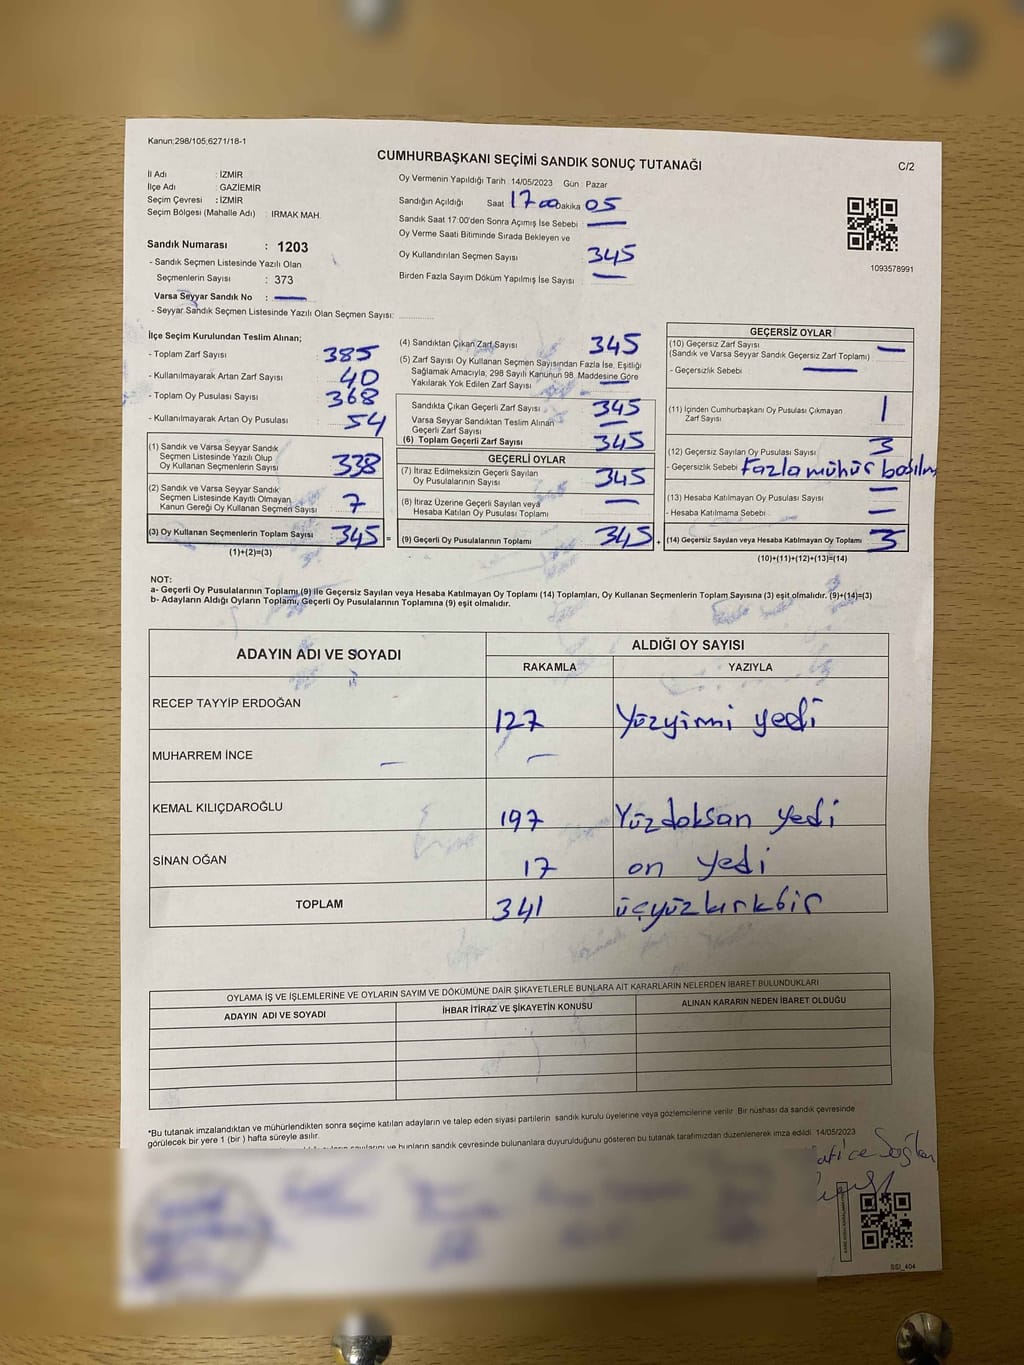 Kanun;298/105;6271/18-1
CUMHURBAŞKANI SEÇİMİ SANDIK SONUÇ TUTANAĞI
C/2
İl Adı : İZMİR
İlçe Adı : GAZİEMİR
Seçim Çevresi : İZMİR
Seçim Bölgesi (Mahalle Adı) : IRMAK MAH.
Sandık Numarası : 1203
- Sandık Seçmen Listesinde Yazılı Olan
Seçmenlerin Sayısı : 373
Varsa Seyyar Sandık No : —
- Seyyar Sandık Seçmen Listesinde Yazılı Olan Seçmen Sayısı:
Oy Vermenin Yapıldığı Tarih 14/05/2023 Gün : Pazar
Sandığın Açıldığı Saat 17 00 Dakika 05
Sandık Saat 17:00'den Sonra Açımış İse Sebebi : —
Oy Verme Saati Bitiminde Sırada Bekleyen ve
Oy Kullandırılan Seçmen Sayısı 345
Birden Fazla Sayım Döküm Yapılmış İse Sayısı : —
1093578991
İlçe Seçim Kurulundan Teslim Alınan;
- Toplam Zarf Sayısı : 385
- Kullanılmayarak Artan Zarf Sayısı : 40
- Toplam Oy Pusulası Sayısı : 368
- Kullanılmayarak Artan Oy Pusulası : 54
(1) Sandık ve Varsa Seyyar Sandık
Seçmen Listesinde Yazılı Olup
Oy Kullanan Seçmenlerin Sayısı 338
(2) Sandık ve Varsa Seyyar Sandık
Seçmen Listesinde Kayıtlı Olmayan
Kanun Gereği Oy Kullanan Seçmen Sayısı 7
(3) Oy Kullanan Seçmenlerin Toplam Sayısı 345 =
(1)+(2)=(3)
(4) Sandıktan Çıkan Zarf Sayısı 345
(5) Zarf Sayısı Oy Kullanan Seçmen Sayısından Fazla İse, Eşitliği
Sağlamak Amacıyla, 298 Sayılı Kanunun 98. Maddesine Göre
Yakılarak Yok Edilen Zarf Sayısı —
Sandıkta Çıkan Geçerli Zarf Sayısı 345
Varsa Seyyar Sandıktan Teslim Alınan
Geçerli Zarf Sayısı —
(6) Toplam Geçerli Zarf Sayısı 345
GEÇERLİ OYLAR
(7) İtiraz Edilmeksizin Geçerli Sayılan
Oy Pusulalarının Sayısı 345
(8) İtiraz Üzerine Geçerli Sayılan veya
Hesaba Katılan Oy Pusulası Toplamı —
(9) Geçerli Oy Pusulalarının Toplamı 345 +
GEÇERSİZ OYLAR
(10) Geçersiz Zarf Sayısı —
(Sandık ve Varsa Seyyar Sandık Geçersiz Zarf Toplamı)
- Geçersizlik Sebebi : —
(11) İçinden Cumhurbaşkanı Oy Pusulası Çıkmayan
Zarf Sayısı 1
(12) Geçersiz Sayılan Oy Pusulası Sayısı 3
- Geçersizlik Sebebi : Fazla mühür
(13) Hesaba Katılmayan Oy Pusulası Sayısı —
- Hesaba Katılmama Sebebi : —
(14) Geçersiz Sayılan veya Hesaba Katılmayan Oy Toplamı 3
(10)+(11)+(12)+(13)=(14)
NOT:
a- Geçerli Oy Pusulalarının Toplamı (9) ile Geçersiz Sayılan veya Hesaba Katılmayan Oy Toplamı (14) Toplamları, Oy Kullanan Seçmenlerin Toplam Sayısına (3) eşit olmalıdır. (9)+(14)=(3)
b- Adayların Aldığı Oyların Toplamı, Geçerli Oy Pusulalarının Toplamına (9) eşit olmalıdır.
ADAYIN ADI VE SOYADI
ALDIĞI OY SAYISI
RAKAMLA YAZIYLA
RECEP TAYYİP ERDOĞAN 127 Yüzyirmi yedi
MUHARREM İNCE — —
KEMAL KILIÇDAROĞLU 197 Yüzdoksan yedi
SİNAN OĞAN 17 on yedi
TOPLAM 341 üçyüzkırkbir
OYLAMA İŞ VE İŞLEMLERİNE VE OYLARIN SAYIM VE DÖKÜMÜNE DAİR ŞİKAYETLERLE BUNLARA AİT KARARLARIN NELERDEN İBARET BULUNDUKLARI
ADAYIN ADI VE SOYADI İHBAR İTİRAZ VE ŞİKAYETİN KONUSU ALINAN KARARIN NEDEN İBARET OLDUĞU
*Bu tutanak imzalandıktan ve mühürlendikten sonra seçime katılan adayların ve talep eden siyasi partilerin sandık kurulu üyelerine veya gözlemcilerine verilir. Bir nüshası da sandık çevresinde
görülecek bir yere 1 (bir ) hafta süreyle asılır.
ve bunların sandık çevresinde bulunanlara duyurulduğunu gösteren bu tutanak tarafımızdan düzenlenerek imza edildi. 14/05/2023
SSI_404